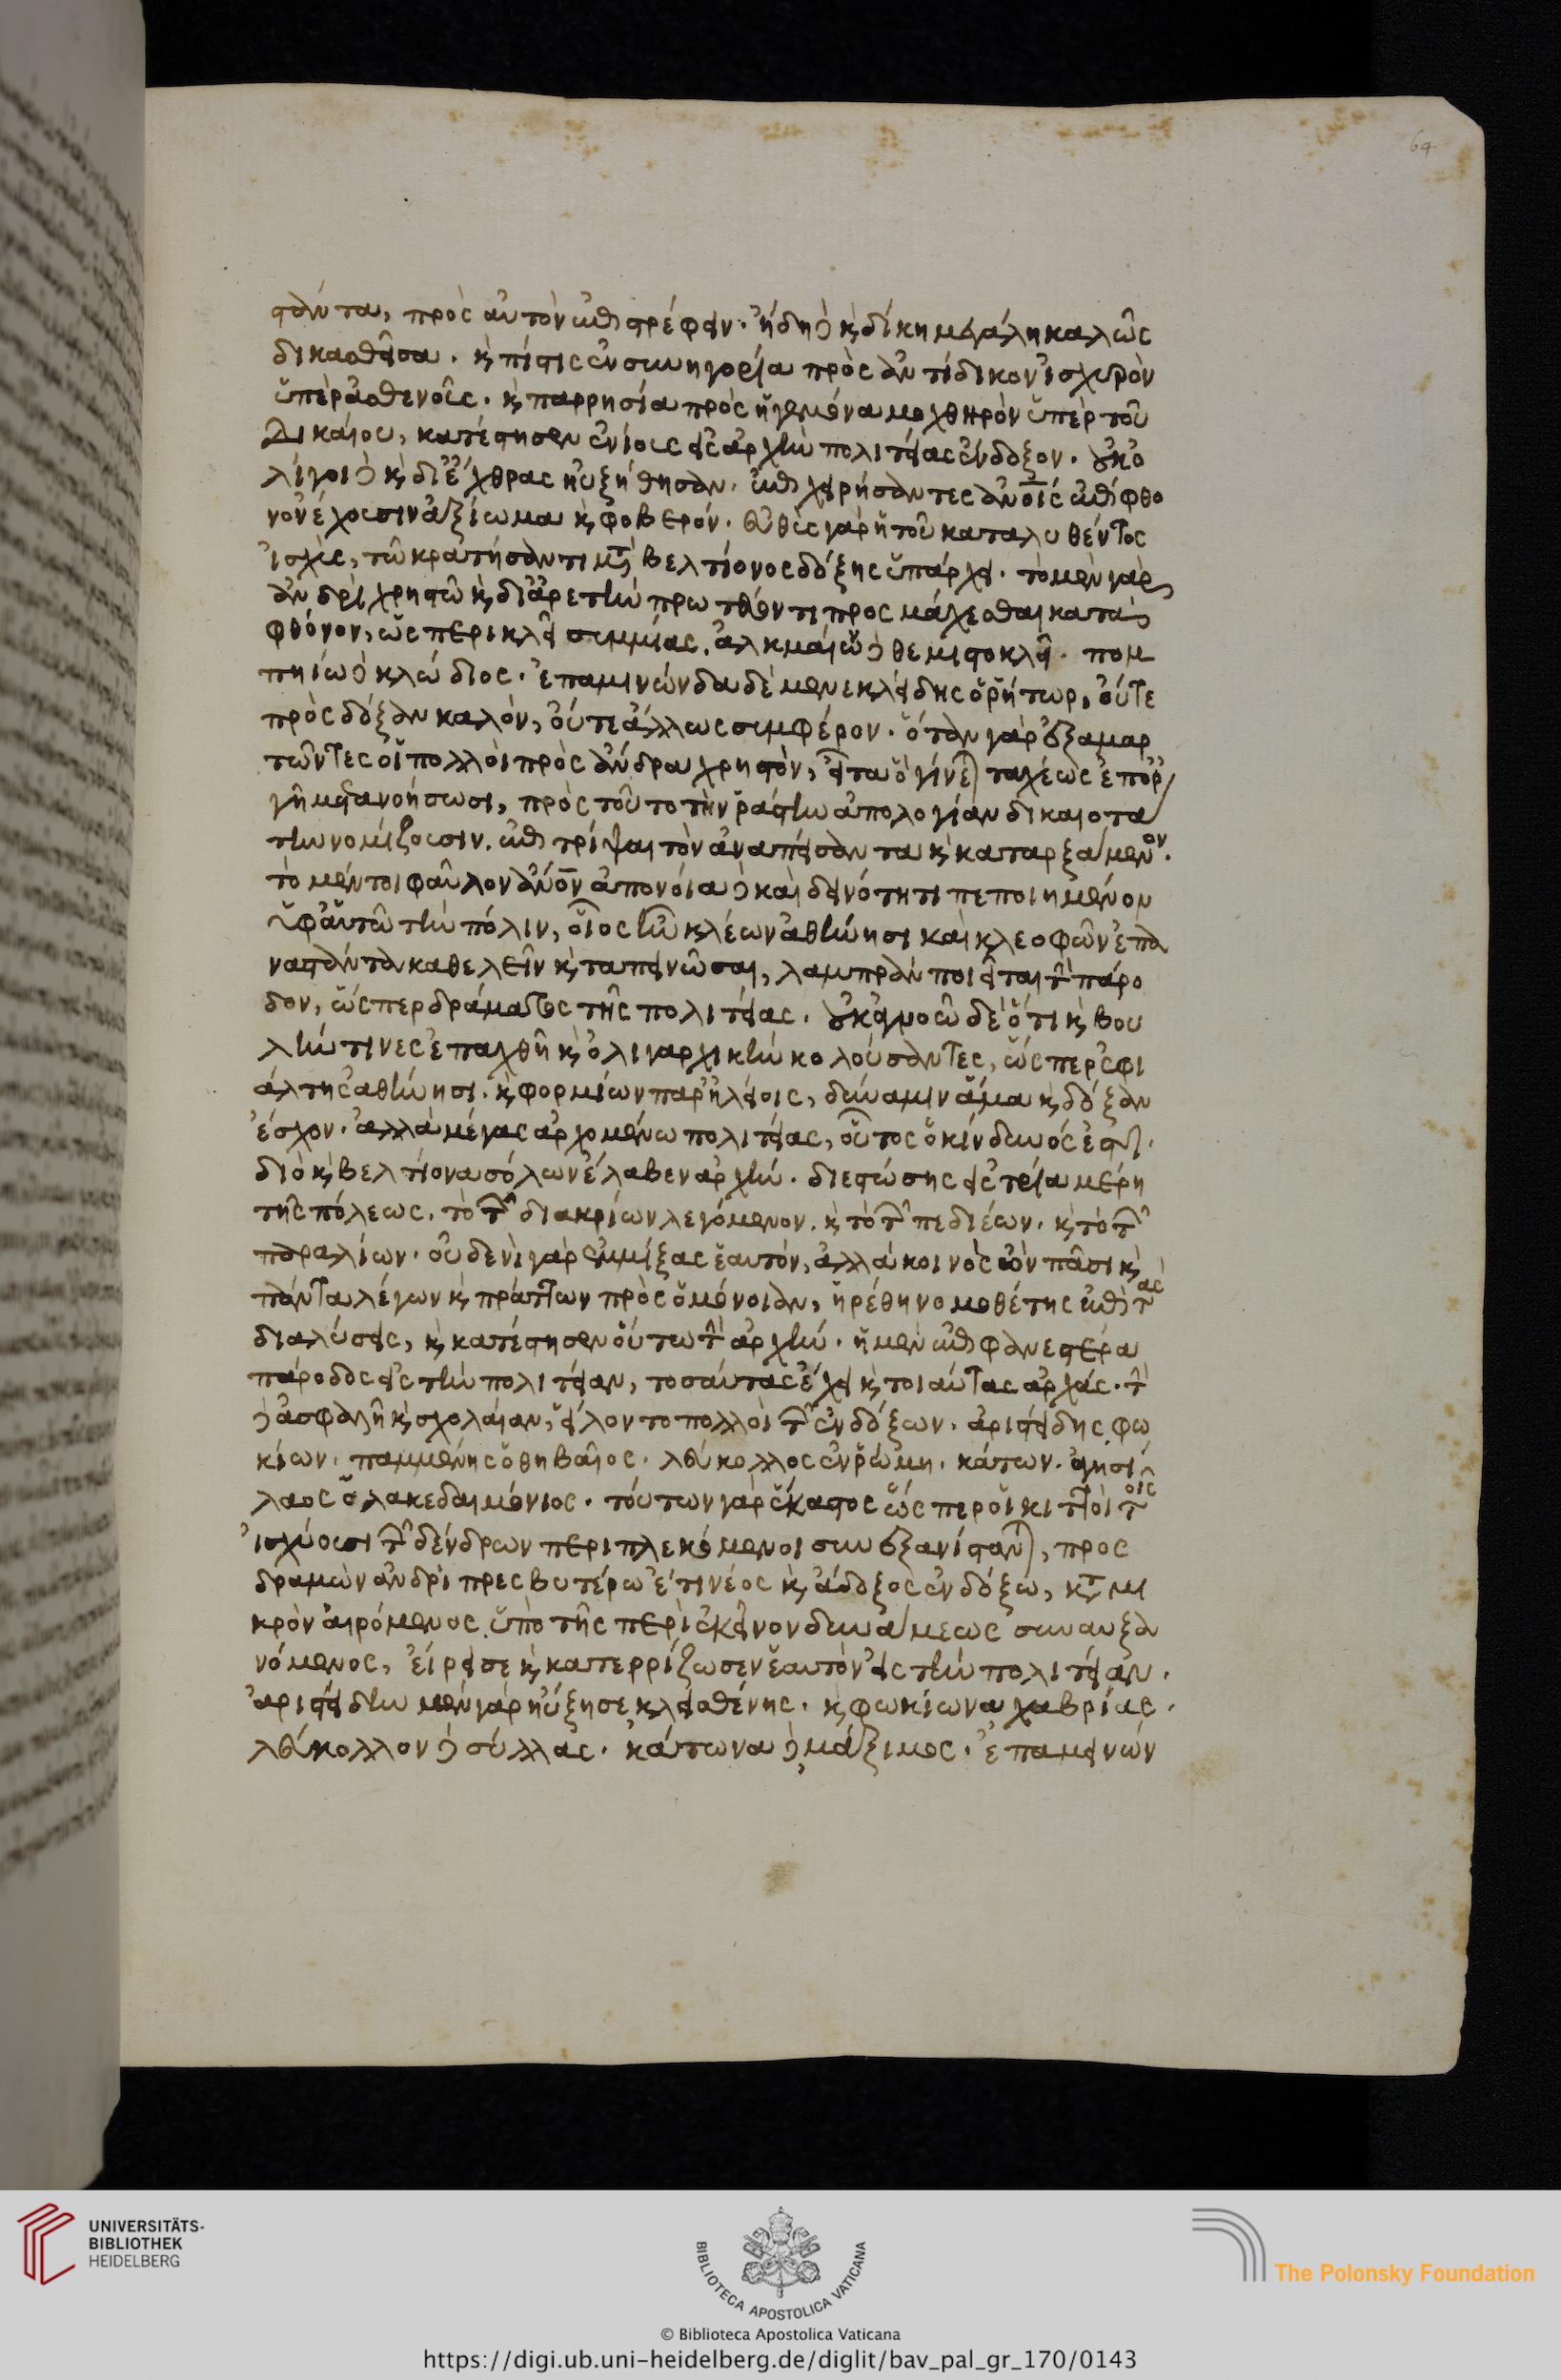 64
στάντα, πρὸς αὐτὸν ἐπιστρέφειν. ἤδη δὲ καὶ δίκη μεγάλη καλῶς
δικασθεῖσα. καὶ πίστις ἐν συνηγορία πρὸς ἀντίδικον ἰσχυρὸν
ὑπὲρ ἀσθενοῦς. καὶ παρρησία πρὸς ἡγεμόνα μοχθηρὸν ὑπὲρ τοῦ
Δικαίου, κατέστησεν ἐνίους εἰς ἀρχὴν πολιτείας ἔνδοξον. οὐκ ὀ
λίγοι δὲ καὶ δι' ἔχθρας ηὐξήθησαν. ἐπιχειρήσαντες ἀνοις ἐπίφθο
νον ἔχουσιν ἀξίωμα καὶ φοβερόν. εὐθὺς γὰρ ἡ τοῦ καταλυθέντος
ἰσχὺς, τῶ κρατήσαντι μετὰ βελτίονος δόξης ὑπάρχει. τὸ μὲν γὰρ
ἀνδρὶ χρηστῶ καὶ δι' ἀρετὴν πρωτεύοντι προσμάχεσθαι κατὰ
φθόνον, ὡς περικλεῖ σιμμίας. ἀλκμαίων δὲ θεμιστοκλεῖ. πομ
πηίω δὲ κλώδιος. ἐπαμινώνδα δὲ μενεκλείδης ὁ ῥήτωρ, οὔτε
πρὸς δόξαν καλὸν, οὔτε ἄλλως συμφέρον. ὅταν γὰρ ἐξαμαρ
τῶντες οἱ πολλοὶ πρὸς ἄνδρα χρηστὸν, εἶτα ὃ γίνεται ταχέως ἐπ' ὀρ
γῆ μετανοήσωσι, πρὸς τοῦτο τὴν ῥάστην ἀπολογίαν δικαιοτά
την νομίζουσιν. ἐπιτρίψαι τὸν ἀναπείσαντα καὶ καταρξάμενον.
τὸ μέντοι φαῦλον ἄνον ἀπονοία δὲ καὶ δεινότητι πεποιημένον
ὑφ' αὑτῶ τὴν πόλιν, οἷος ἦν κλέων ἀθήνησι καὶ κλεοφῶν ἐπα
ναστάντα καθελεῖν καὶ ταπεινῶσαι, λαμπρὰν ποιεῖται τὴν πάρο
δον, ὥσπερ δράματος τῆς πολιτείας. οὐκ ἀγνοῶ δὲ ὅτι καὶ βου
λήν τινες ἐπαχθῆ καὶ ὀλιγαρχικὴν κολούσαντες, ὥσπερ ἐφι
άλτης ἀθήνησι. καὶ φορμίων παρ' ἠλείοις, δύναμιν ἅμα καὶ δόξαν
ἔσχον. ἀλλὰ μέγας ἀρχομένω πολιτείας, οὗτος ὁ κίνδυνός ἐστι.
διὸ καὶ βελτίονα σόλων ἔλαβεν ἀρχήν. διεστώσης εἰς τρία μέρη
τῆς πόλεως. τὸ τῶν διακρίων λεγόμενον. καὶ τὸ τῶν πεδιέων. καὶ τὸ τῶν
παραλίων. οὐδενὶ γὰρ ἐμμίξας ἑαυτὸν, ἀλλὰ κοινὸς ὢν πᾶσι καὶ
πάντα λέγων καὶ πράττων πρὸς ὁμόνοιαν, ἡρέθη νομοθέτης ἐπὶ τὰς
διαλύσεις, καὶ κατέστησεν οὕτω τὴν ἀρχήν. ἡ μὲν ἐπιφανεστέρα
πάροδος εἰς τὴν πολιτείαν, τοσαύτας ἔχει καὶ τοιαύτας ἀρχάς. τὴν
δὲ ἀσφαλῆ καὶ σχολαίαν, εἵλοντο πολλοὶ τῶν ἐνδόξων. ἀριστείδης, φω
κίων. παμμένης ὁ θηβαῖος. λεύκολλος ἐν ῥώμη. κάτων. ἀγησί
λαος ὁ λακεδαιμόνιος. τούτων γὰρ ἕκαστος ὥσπερ οἱ κιττοὶ τοῖς
ἰσχύουσι τῶν δένδρων περιπλεκόμενοι συνεξανίστανται, προς
δραμὼν ἀνδρὶ πρεσβυτέρω ἔτι νέος καὶ ἄδοξος ἐνδόξω, κατὰ μι
κρὸν αἰρόμενος ὑπὸ τῆς περὶ ἐκεῖνον δυνάμεως συναυξα
νόμενος, εἴρεισε καὶ κατερρίζωσεν ἑαυτὸν εἰς τὴν πολιτείαν.
ἀριστείδην μὲν γὰρ ηὔξησε κλεισθένης. καὶ φωκίωνα χαβρίας.
λεύκολλον δὲ σύλλας. κάτωνα δὲ μάξιμος. ἐπαμεινών
UNIVERSITÄTS-
BIBLIOTHEK
HEIDELBERG
BIBLIOTECA APOSTOLICA VATICANA
The Polonsky Foundation
© Biblioteca Apostolica Vaticana
https://digi.ub.uni-heidelberg.de/diglit/bav_pal_gr_170/0143